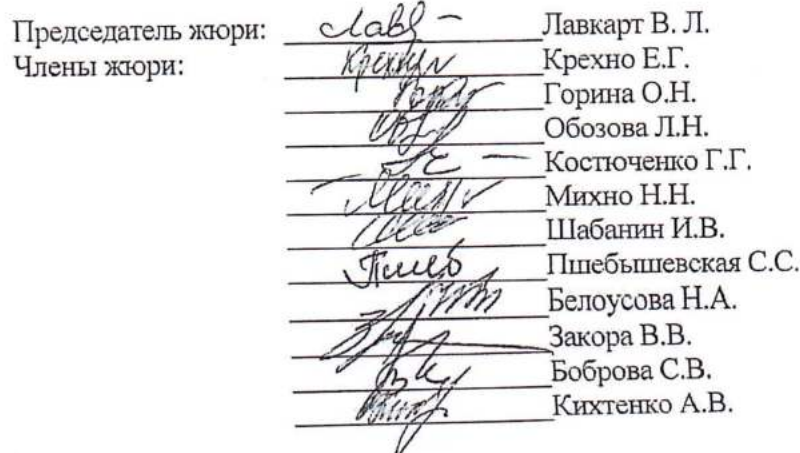 Председатель жюри: Лавкарт В. Л.
Члены жюри: Крехно Е.Г.
Горина О.Н.
Обозова Л.Н.
Костюченко Г.Г.
Михно Н.Н.
Шабанин И.В.
Пшебышевская С.С.
Белоусова Н.А.
Закора В.В.
Боброва С.В.
Кихтенко А.В.